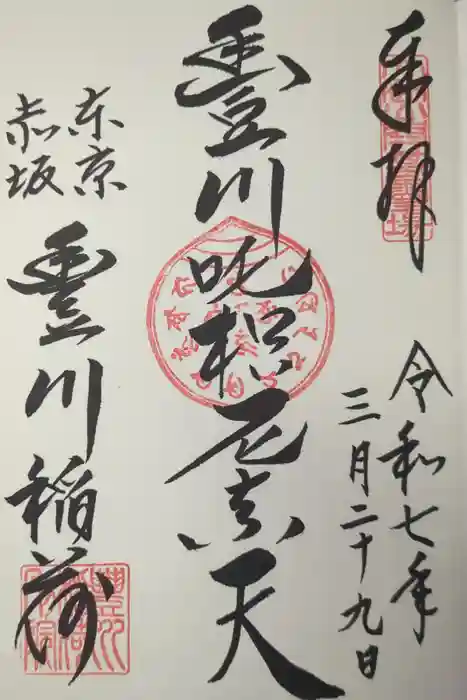 奉拝
令和七年
三月二十九日
豊川吒枳尼真天
東京
赤坂
豊川稲荷